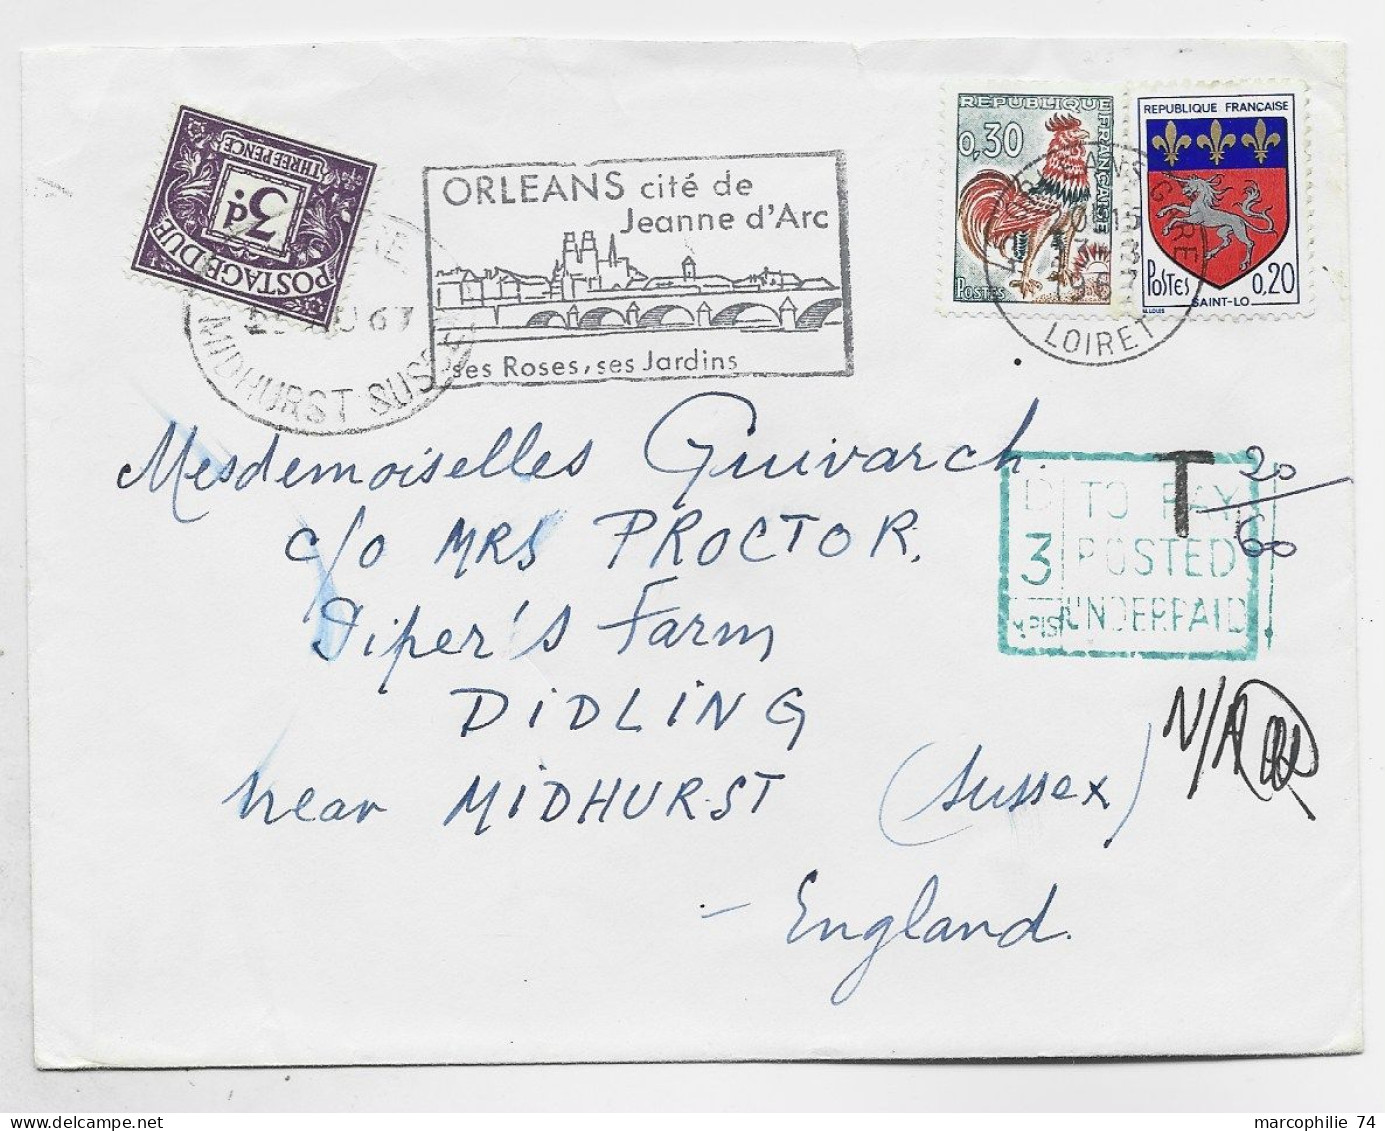 THREE PENCE
3d.
POSTAGE DUE
67
MIDHURST SUSSEX
ORLEANS cité de
Jeanne d'Arc
ses Roses, ses Jardins
REPUBLIQUE FRANÇAISE
0,30
POSTES
REPUBLIQUE FRANÇAISE
Postes 0,20
SAINT-LO
GARE
LOIRET
Mesdemoiselles Guivarch.
c/o MRS PROCTOR.
Piper's Farm
DIDLING
near MIDHURST (Sussex)
- England.
T 20/60
D TO PAY
3 POSTED
UNDERPAID
N/A
marcophilie 74